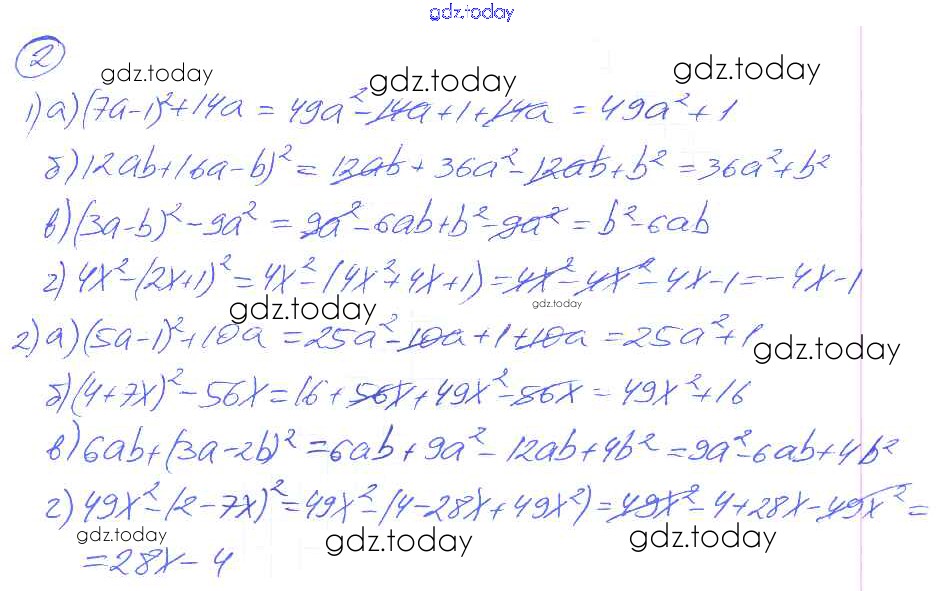 gdz.today
2
gdz.today gdz.today gdz.today
1) а) (7a-1)²+14a = 49a²-14a+1+14a = 49a²+1
б) 12ab+(6a-b)² = 12ab+36a²-12ab+b² = 36a²+b²
в) (3a-b)²-9a² = 9a²-6ab+b²-9a² = b²-6ab
г) 4x²-(2x+1)² = 4x²-(4x²+4x+1) = 4x²-4x²-4x-1 = -4x-1
gdz.today gdz.today
2) а) (5a-1)²+10a = 25a²-10a+1+10a = 25a²+1
gdz.today
б) (4+7x)²-56x = 16+56x+49x²-56x = 49x²+16
в) 6ab+(3a-2b)² = 6ab+9a²-12ab+4b² = 9a²-6ab+4b²
г) 49x²-(2-7x)² = 49x²-(4-28x+49x²) = 49x²-4+28x-49x² =
gdz.today gdz.today gdz.today
= 28x-4